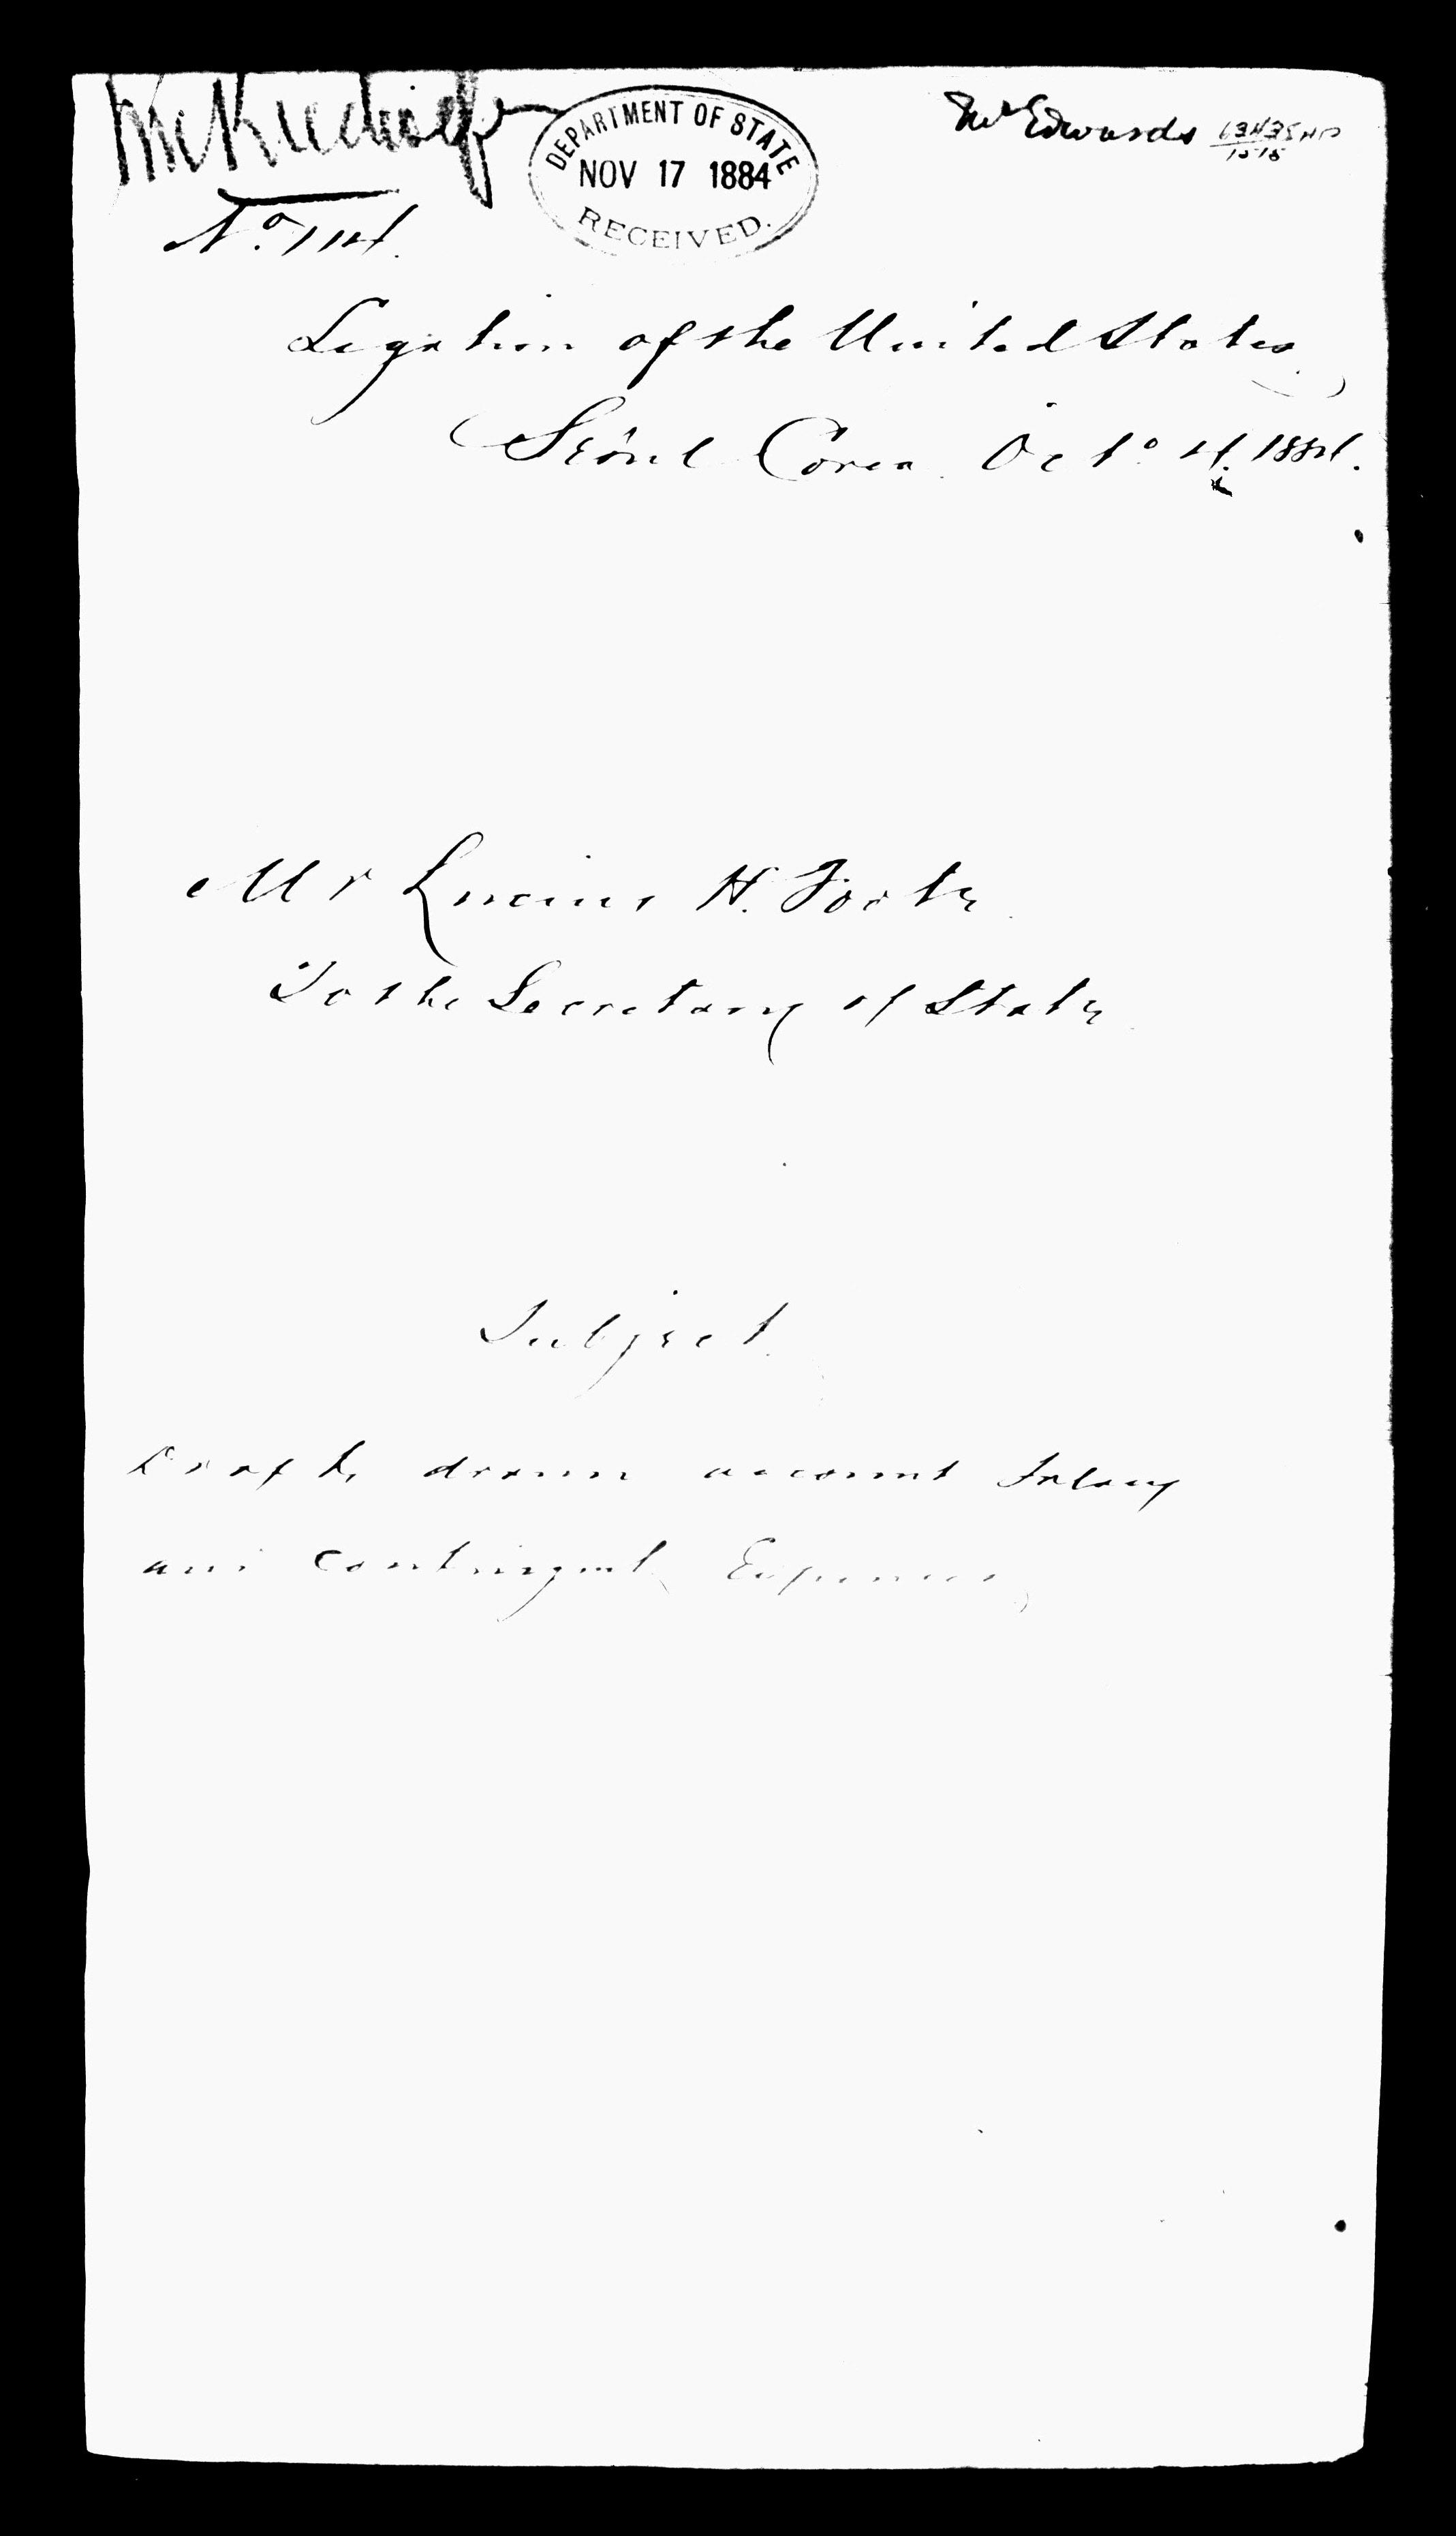 Mr Edwards
DEPARTMENT OF STATE
NOV 17 1884
RECEIVED.
No. 114.
Legation of the United States,
Seoul Corea. Oct. 4. 1884.
Mr Lucius H. Foote.
To the Secretary of State.
Subject.
Drafts drawn account Salary
and Contingent Expenses,